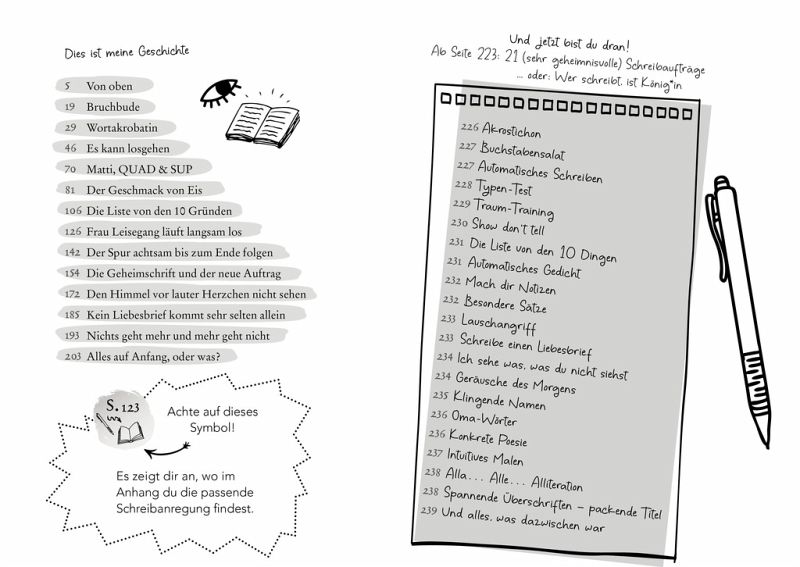 Dies ist meine Geschichte
5 Von oben
19 Bruchbude
29 Wortakrobatin
46 Es kann losgehen
70 Matti, QUAD & SUP
81 Der Geschmack von Eis
106 Die Liste von den 10 Gründen
126 Frau Leisegang läuft langsam los
142 Der Spur achtsam bis zum Ende folgen
154 Die Geheimschrift und der neue Auftrag
172 Den Himmel vor lauter Herzchen nicht sehen
185 Kein Liebesbrief kommt sehr selten allein
193 Nichts geht mehr und mehr geht nicht
203 Alles auf Anfang, oder was?
S. 123
Achte auf dieses
Symbol!
Es zeigt dir an, wo im
Anhang du die passende
Schreibanregung findest.
Und jetzt bist du dran!
Ab Seite 223: 21 (sehr geheimnisvolle) Schreibaufträge
... oder: Wer schreibt, ist König*in
226 Akrostichon
227 Buchstabensalat
227 Automatisches Schreiben
228 Typen-Test
229 Traum-Training
230 Show don't tell
231 Die Liste von den 10 Dingen
231 Automatisches Gedicht
232 Mach dir Notizen
232 Besondere Sätze
233 Lauschangriff
233 Schreibe einen Liebesbrief
234 Ich sehe was, was du nicht siehst
234 Geräusche des Morgens
235 Klingende Namen
236 Oma-Wörter
236 Konkrete Poesie
237 Intuitives Malen
238 Alla... Alle... Alliteration
238 Spannende Überschriften – packende Titel
239 Und alles, was dazwischen war